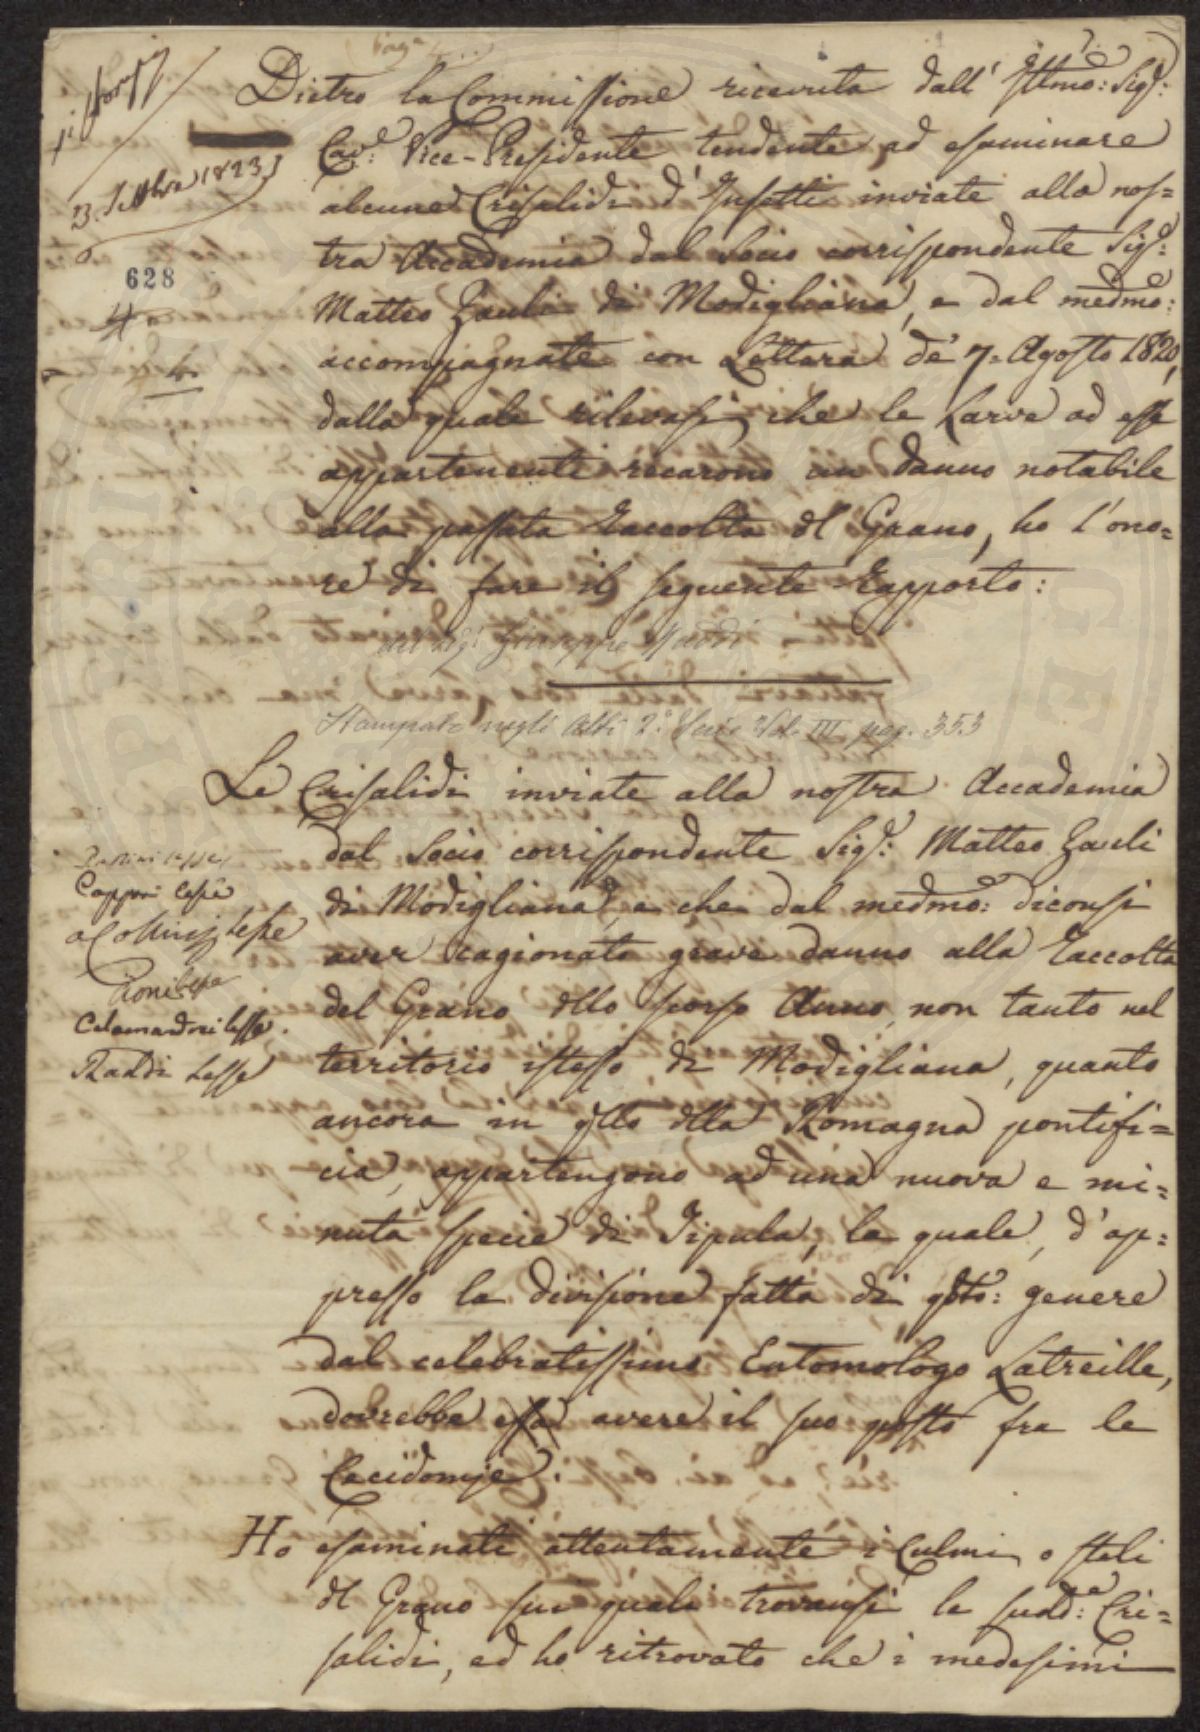 Dietro la Commissione ricevuta dall' Ill.mo: Sig.r:
si stampi
Cav.e: Vice-Presidente tendente ad esaminare
23. Settbre 1823.
alcune Crisalidi d'Insetti inviate alla nos=
tra Accademia dal Socio corrispondente Sig.r:
628
Matteo Zauli di Modigliana, e dal medmo:
4
accompagnate con Lettera de' 7. Agosto 1820,
dalla quale rilevasi, che le Larve ad esse
appartenenti recarono un danno notabile
alla passata Raccolta dl Grano, ho l'ono=
re di fare il seguente Rapporto:
del Sig.r Giuseppe Raddi
Stampato negli Atti 2.a Serie Vol. III pag. 353
Le Crisalidi inviate alla nostra Accademia
dal Socio corrispondente Sig.r: Matteo Zauli
di Modigliana, e che dal medmo: diconsi
aver cagionato grave danno alla Raccolta
del Grano dllo scorso Anno, non tanto nel
territorio istesso di Modigliana, quanto
ancora in qllo dlla Romagna pontifi=
cia, appartengono ad una nuova e mi=
nuta specie di Tipula, la quale, d'ap=
presso la divisione fatta di qsto: genere
dal celebratissimo Entomologo Latreille,
dovrebbe essa avere il suo posto fra le
Cecidomje.
Capponi lesse
Collini lesse
Calamandrei lesse.
Raddi lesse
Ho esaminati attentamente i Culmi, o steli
dl Grano sui quali trovansi le sudd.e: Cri=
salidi, ed ho ritrovato che i medesimi